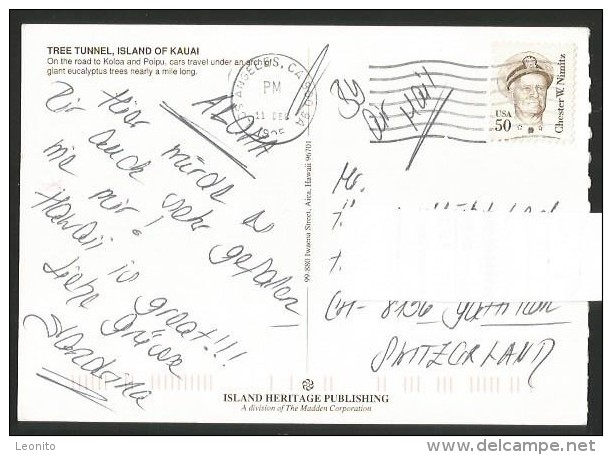 TREE TUNNEL, ISLAND OF KAUAI
On the road to Koloa and Poipu, cars travel under an arch of
giant eucalyptus trees nearly a mile long.
LOS ANGELES, CA
PM
11 DEC
1985
USA
50
Chester W. Nimitz
ALOHA
Hier würde es
Dir auch sehr gefallen
wie mir!
Hawaii is great!!!
Liebe Grüsse
99-880 Iwaena Street, Aiea, Hawaii 96701
Mr.
CH-8156
SWITZERLAND
ISLAND HERITAGE PUBLISHING
A division of The Madden Corporation
Leonito
www.delcampe.net